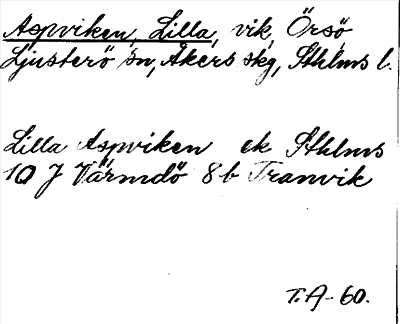 Aspviken, Lilla, vik, Örsö
Ljusterö sn, Åkers skg, Sthlms l.
Lilla Aspviken ek Sthlms
10 J Värmdö 8 b Tranvik
T.A-60.